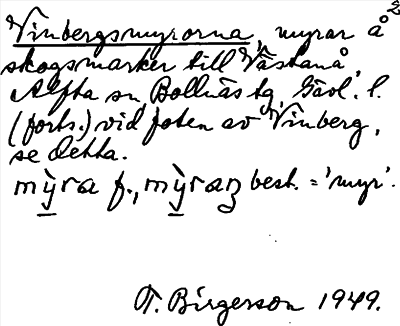 Vinbergsmyrorna, myrar å 2
skogsmarker till Västanå,
Alfta sn, Bollnäs tg, Gävl. l.
(forts.) vid foten av Vinberg,
se detta.
mỳra f., mỳraɳ best. = 'myr'.
T. Birgerson 1949.